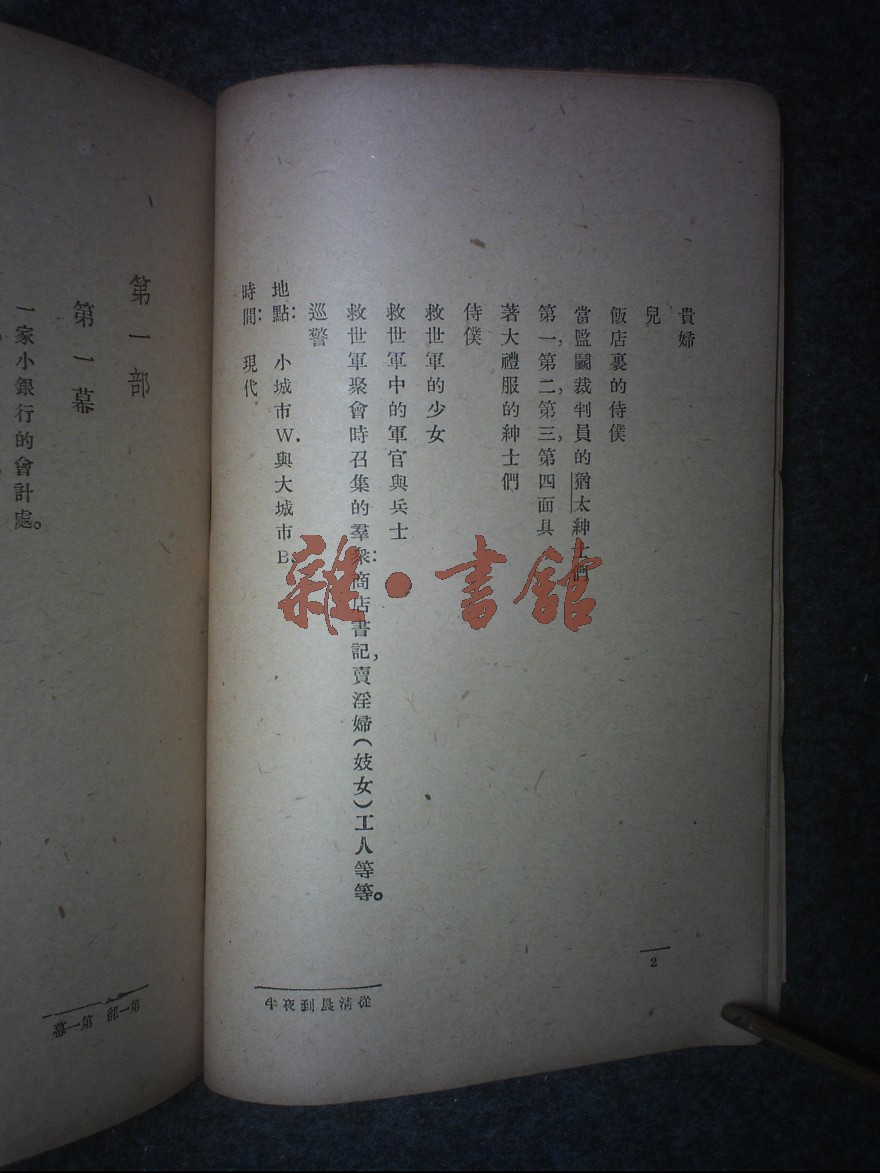 貴婦
兒
飯店裏的侍僕
當監鬭裁判員的猶太紳士們
第一,第二,第三,第四面具
著大禮服的紳士們
侍僕
救世軍的少女
救世軍中的軍官與兵士
救世軍聚會時召集的羣衆:商店書記,賣淫婦(妓女)工人等等。
巡警
地點: 小城市W.與大城市B.
時間: 現代
2
從清晨到夜半
第一部
第一幕
一家小銀行的會計處。
第一部 第一幕
雜·書館